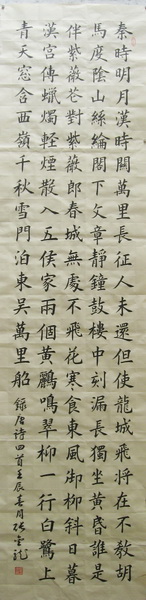 秦時明月漢時關萬里長征人未還但使龍城飛將在不教胡
馬度陰山絲綸閣下文章靜鐘鼓樓中刻漏長獨坐黃昏誰是
伴紫薇花對紫薇郎春城無處不飛花寒食東風御柳斜日暮
漢宮傳蠟燭輕煙散入五侯家兩個黃鸝鳴翠柳一行白鷺上
青天窓含西嶺千秋雪門泊東吳萬里船 錄唐诗四首壬辰春月